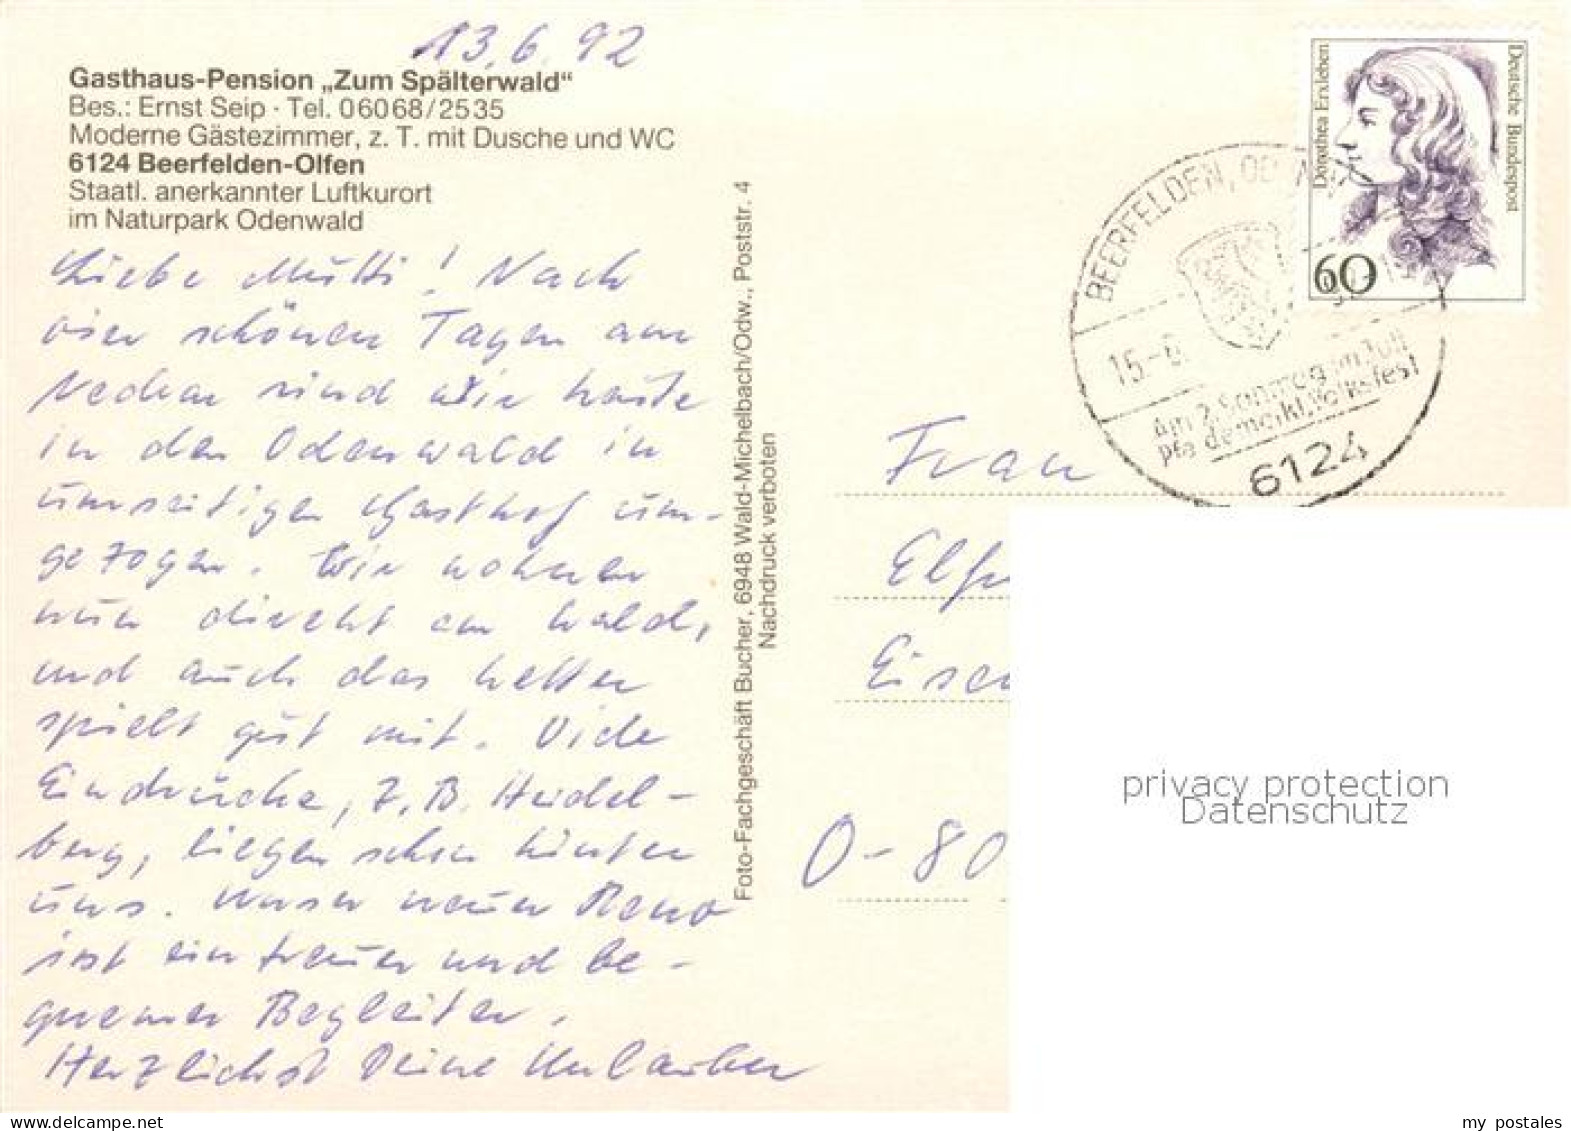 13.6.92
Gasthaus-Pension „Zum Spälterwald“
Bes.: Ernst Seip · Tel. 06068/2535
Moderne Gästezimmer, z. T. mit Dusche und WC
6124 Beerfelden-Olfen
Staatl. anerkannter Luftkurort
im Naturpark Odenwald
Liebe Mutti! Nach
vier schönen Tagen am
Neckar sind wir heute
in den Odenwald in
umseitigen Gasthof um-
gezogen. Wir wohnen
nun direkt am Wald,
und auch das Wetter
spielt gut mit. Viele
Eindrücke, z.B. Heidel-
berg, liegen schon hinter
uns. Unser neuer Reno
ist ein treuer und be-
quemer Begleiter.
Herzlichst Deine Urlauber
Foto-Fachgeschäft Bucher, 6948 Wald-Michelbach/Odw., Poststr. 4
Nachdruck verboten
Dorothea Erxleben
Deutsche Bundespost
60
BEERFELDEN, OD
15.-6.
Am 2. Sonntag im Juli
Pferdemarkt, Volksfest
6124
Frau
Elf
Eisen
O-80
privacy protection
Datenschutz
my postales